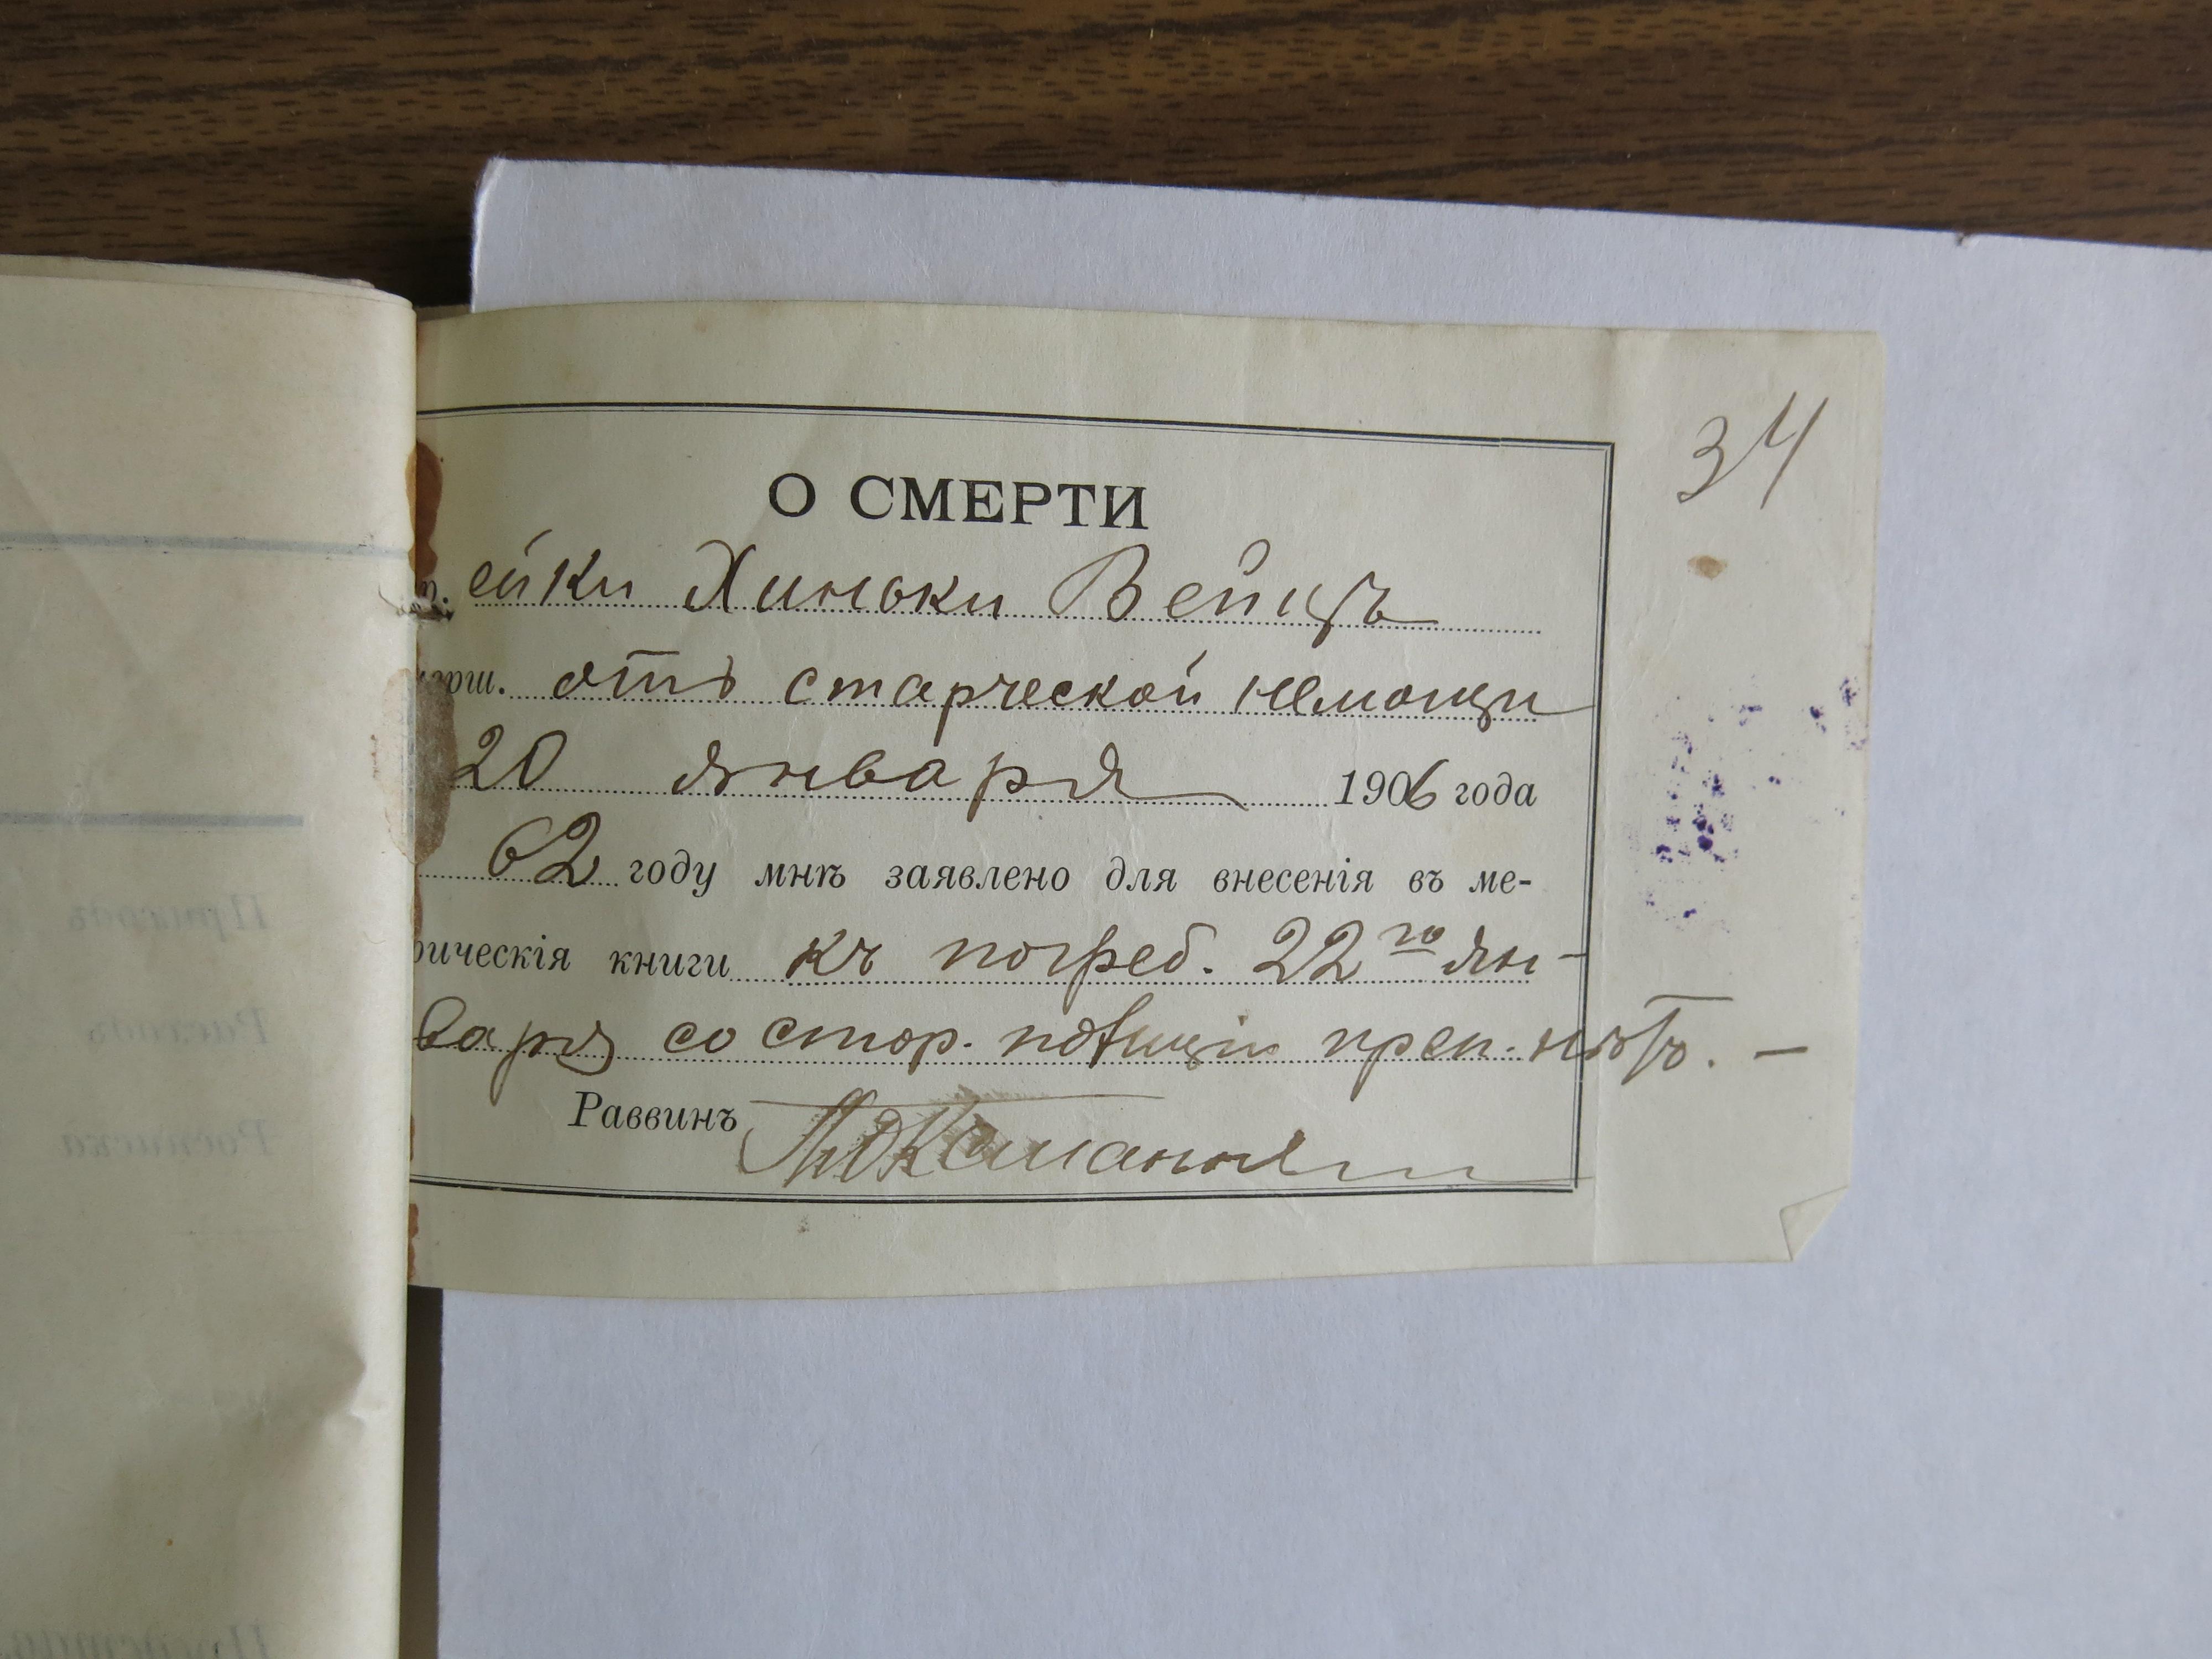 34
О СМЕРТИ
ейки Хиньки Вейцъ
ерш. отъ старческой немощи
20 января 1906 года
62 году мнѣ заявлено для внесенія въ ме-
рическія книги къ погреб. 22го Ян-
варя со стор. полиціи преп. нѣтъ. —
Раввинъ